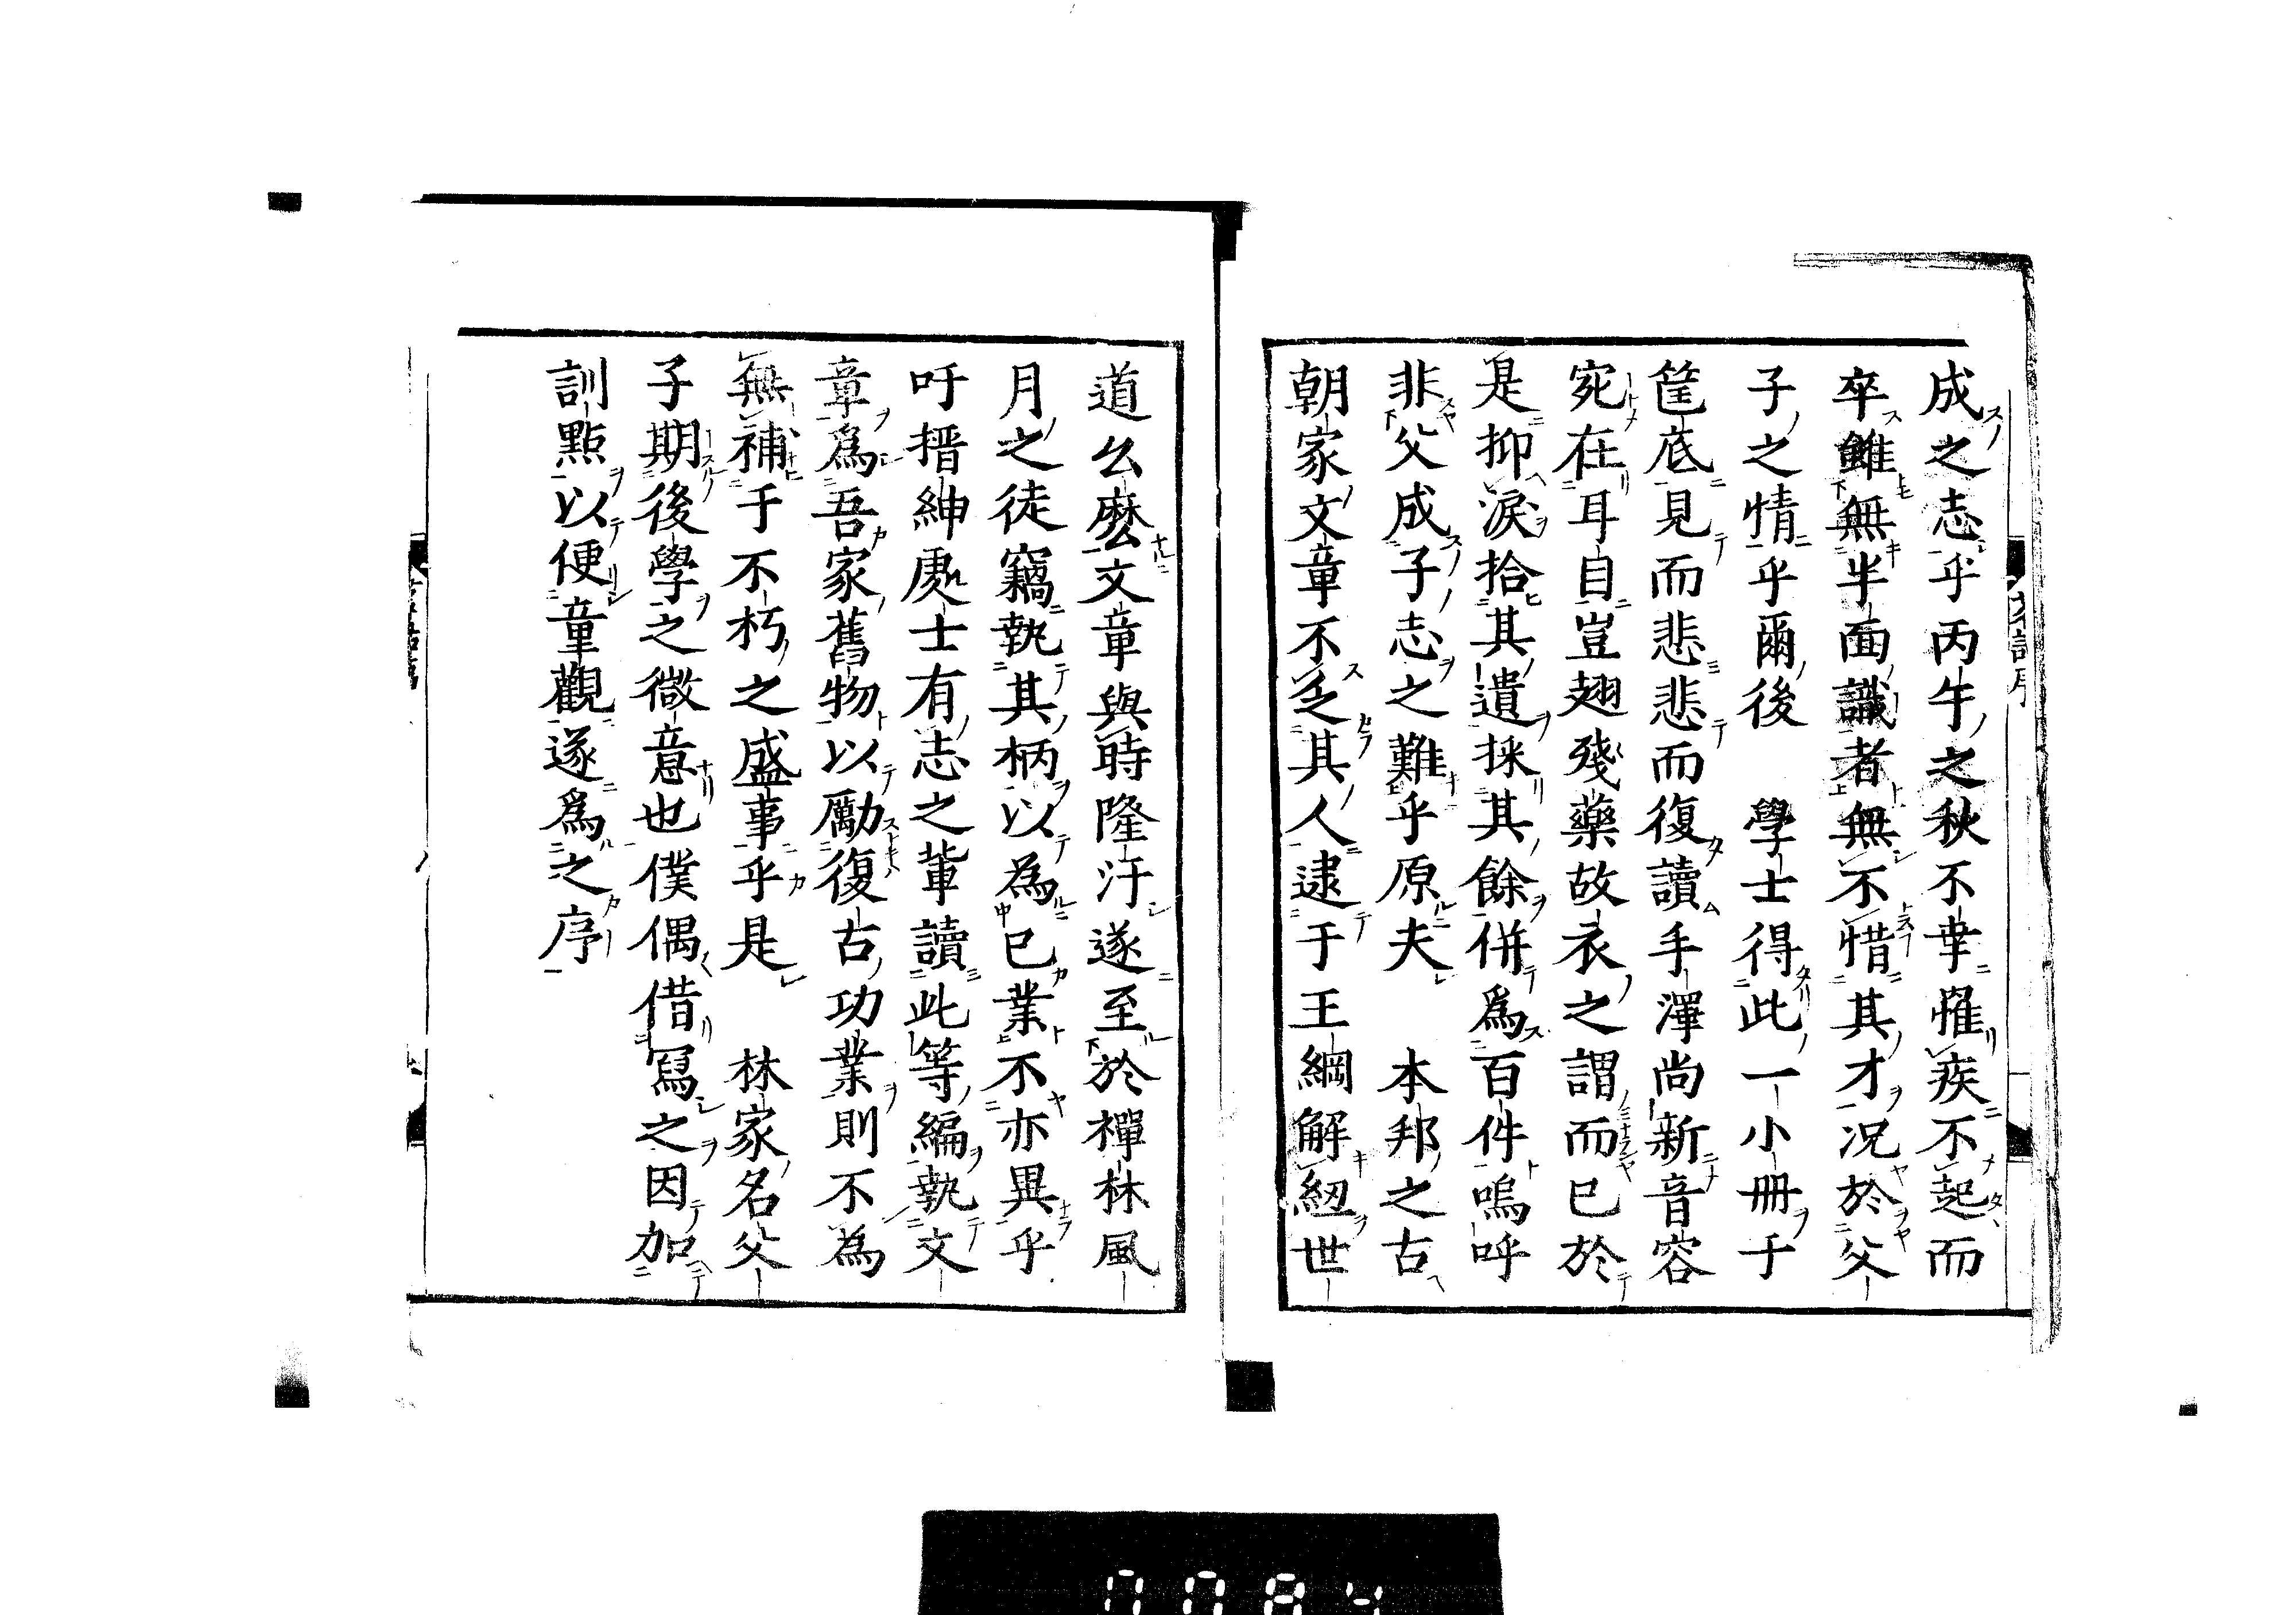 成之志乎丙午之秋不幸罹疾不起而
卒雖無半面識者無不惜其才况於父
子之情乎爾後　學士得此一小冊于
筐底見而悲悲而復讀手澤尚新音容
宛在耳目豈翅殘藥故衣之謂而已於
是抑淚拾其遺採其餘併爲百件嗚呼
非父成子志之難乎原夫　本邦之古
朝家文章不乏其人逮于王綱解紐世
道么麽文章與時隆汙遂至於禪林風
月之徒竊執其柄以為已業不亦異乎
吁搢紳處士有志之輩讀此等編執文
章爲吾家舊物以勵復古功業則不為
無補于不朽之盛事乎是　林家名父
子期後學之微意也僕偶借冩之因加
訓點以便童觀遂爲之序
0084